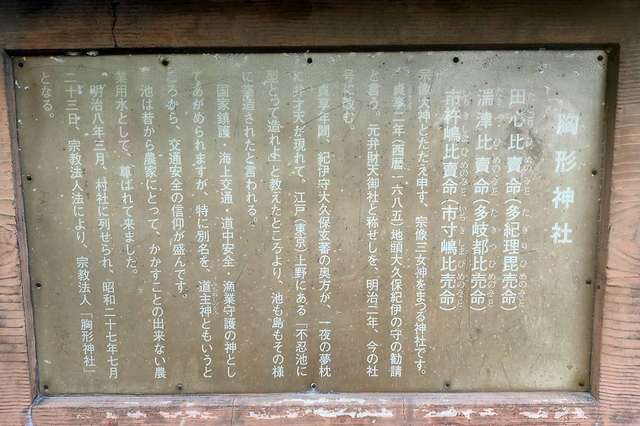 胸形神社
田心比賣命(多紀理毘売命)
湍津比賣命(多岐都比売命)
市杵嶋比賣命(市寸嶋比売命)
宗像大神とたたえ申す、宗像三女神をまつる神社です。
貞享二年(西暦一六八五)地頭大久保紀伊の守の勧請
と言う。元弁財天御社と称せしを、明治二年、今の社
号に改む。
貞享年間、紀伊守大久保玄蕃の奥方が、一夜の夢枕
に弁才天が現れて、江戸(東京)上野にある「不忍池に
型とって造れよ」と教えたところより、池も島もその様
に築造されたと言われる。
国家鎮護・海上交通・道中安全・漁業守護の神とし
てあがめられますが、特に別名を、道主神ともいうと
ころから、交通安全の信仰が盛んです。
池は昔から農家にとって、かかすことの出来ない農
業用水として、尊ばれて来ました。
明治八年三月、村社に列せられ、昭和二十七年七月
二十三日、宗教法人法により、宗教法人「胸形神社」
となる。